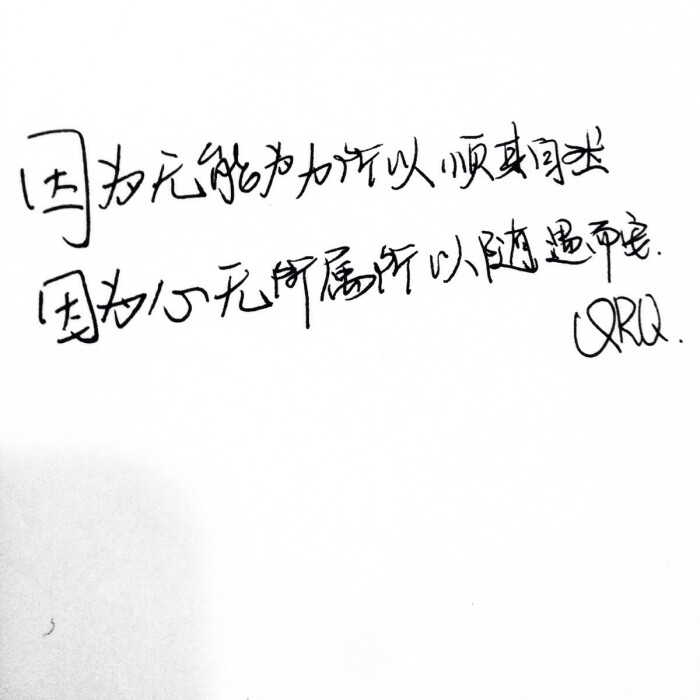 因为无能为力所以顺其自然
因为心无所属所以随遇而安.
QRQ.